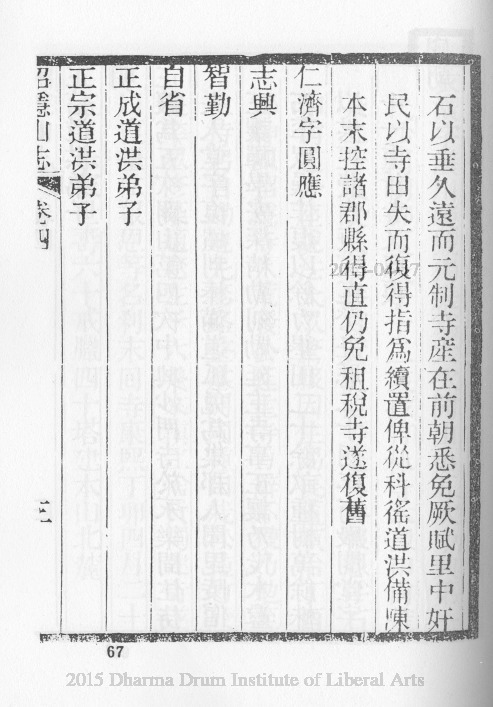 石以垂久遠而元制寺產在前朝悉免厥賦里中奸
民以寺田失而復得指為續置俾從科徭道洪備陳
本末控諸郡縣得直仍免租稅寺遂復舊
仁濟字圓應
志興
智勤
自省
正成道洪弟子
正宗道洪弟子
招隱山志 卷四
三
67
2015 Dharma Drum Institute of Liberal Arts